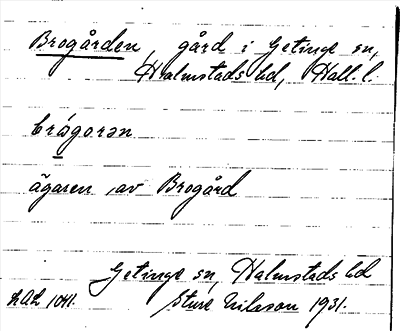 Brogården, gård i Getinge sn,
Halmstads hd, Hall. l.
brógo.rən
ägaren av Brogård
Getinge sn, Halmstads hd
1041. Sture Nilsson 1931.